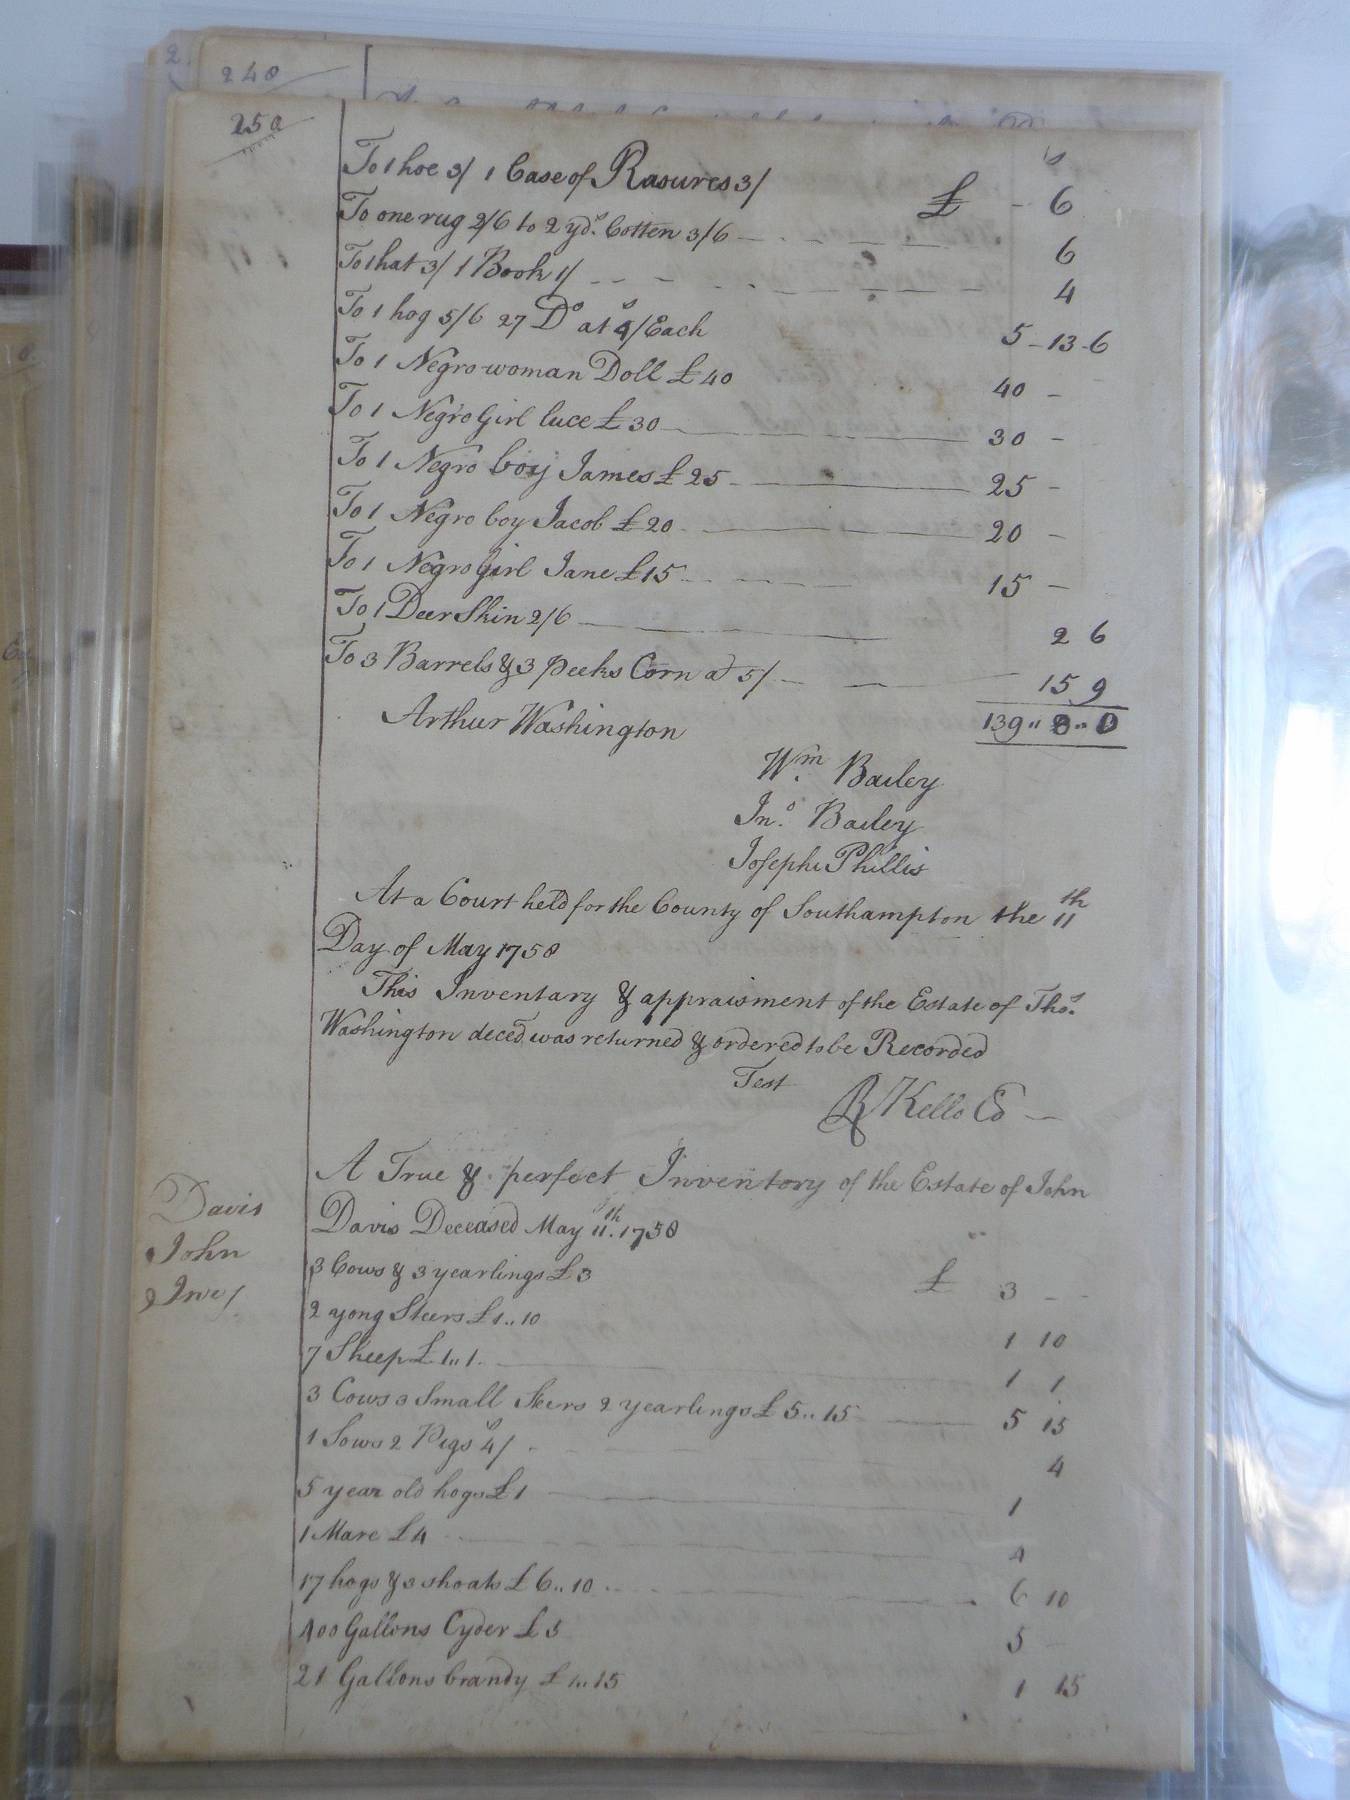 240
250
s
To 1 hoe 3/ 1 Case of Rasures 3/ £ - 6
To one rug 2/6 to 2 yds. Cotten 3/6 6
To 1 hat 3/ 1 Book 1/ 4
To 1 hog 5/6 27 Do at 4/s Each 5-13-6
To 1 Negro woman Doll £40 40 -
To 1 Negro Girl luce £30 30 -
To 1 Negro boy James £25 25 -
To 1 Negro boy Jacob £20 20 -
To 1 Negro Girl Jane £15 15 -
To 1 Deer Skin 2/6 2 6
To 3 Barrels & 3 pecks Corn at 5/ 15 9
Arthur Washington 139"8"0
Wm. Bailey
Jno. Bailey
Joseph Phillis
At a Court held for the County of Southampton the 11th
Day of May 1758
This Inventary & appraisment of the Estate of Thos.
Washington deced was returned & ordered to be Recorded
Test R Kello Cd
A True & perfect Inventory of the Estate of John
Davis Deceased May 11th. 1758
Davis
John
Inv/
3 Cows & 3 yearlings £3 £ 3 - -
2 yong Steers £1..10 1 10
7 Sheep £1..1 1 1
3 Cows 3 Small Steers 2 yearlings £5..15 5 15
1 Sows 2 Pigs 4/s 4
5 year old hogs £1 1
1 Mare £4 4
17 hogs & 3 shoats £6..10 6 10
400 Gallons Cyder £5 5 -
21 Gallons brandy £1..15 1 15